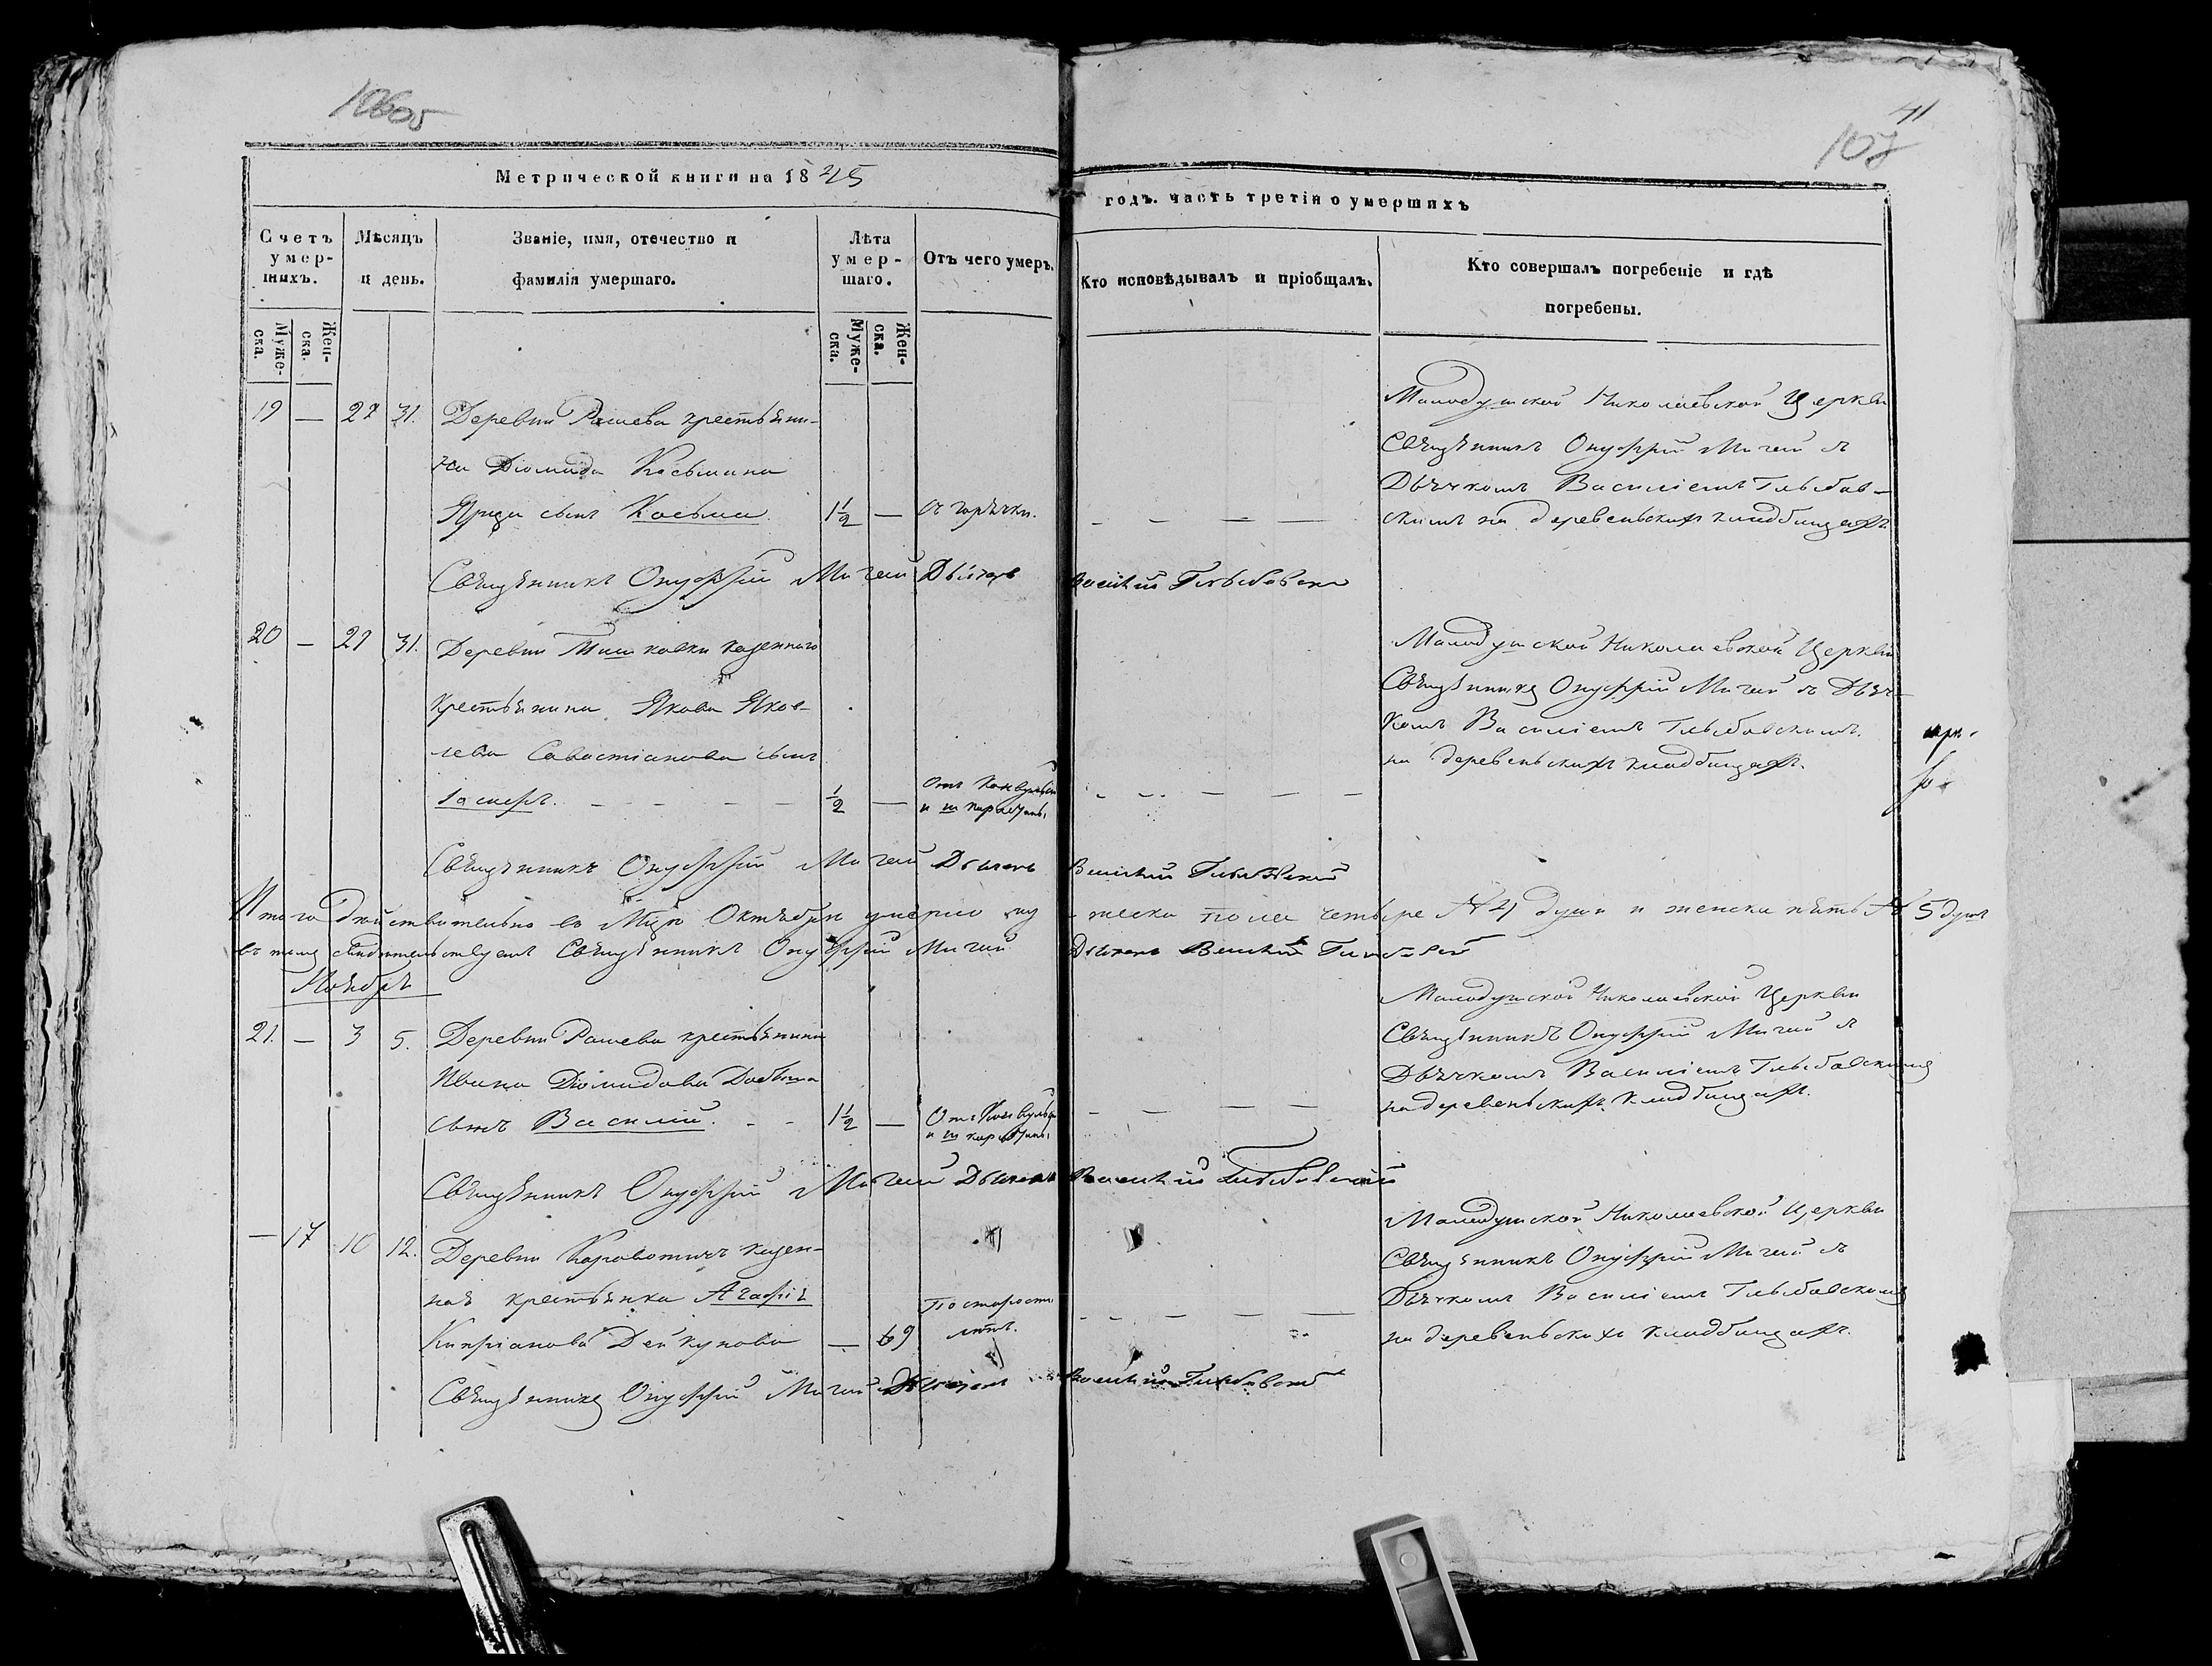 41
107
Метрической книги на 1845
годъ. часть третія о умершихъ
Счетъ умер-шихъ.
Мѣсяцъ и день.
Званіе, имя, отечество и фамилія умершаго.
Лѣта умер-шаго.
Отъ чего умеръ.
Кто исповѣдывалъ и пріобщалъ.
Кто совершалъ погребеніе и гдѣ погребены.
Муже-ска.
Жен-ска.
Муже-ска.
Жен-ска.
19 — 31.
Деревни Рашева крестьяни-
на Діомида Косьмина
сынъ Косьма. 1½ — горячки.
Малодушской Николаевской Церкви
Священникъ Онуфрій Мигай съ
Дьячкомъ Василіемъ Глыбов-
скимъ на деревеньскихъ кладбищахъ.
Священникъ Онуфрій Мигай Дьячекъ Василій Глыбовскій
20 — 31.
Деревни казеннаго
крестьянина Якова Яков-
лева Савостіанова сынъ
Іосифъ. ½ — Отъ конвульсій
и
Малодушской Николаевской Церкви
Священникъ Онуфрій Мигай съ Дьяч-
комъ Василіемъ Глыбовскимъ.
на деревеньскихъ кладбищахъ.
Священникъ Онуфрій Мигай Дьячекъ Василій Глыбовскій
Итого дѣйствительно въ Мцѣ Октябрѣ умерло мужеска пола четыре № 4 души и женска пять № 5 душъ
въ томъ свидѣтельствуемъ Священникъ Онуфрій Мигай Дьячекъ Василій Глыбовскій
Ноябрь
21. — 3 5.
Деревни Рашева крестьянина
Ивана Діомидова
сынъ Василій. 1½ — Отъ Конвульсій
и
Малодушской Николаевской Церкви
Священникъ Онуфрій Мигай съ
Дьячкомъ Василіемъ Глыбовскимъ
на деревеньскихъ кладбищахъ.
Священникъ Онуфрій Мигай Дьячекъ Василій Глыбовскій
— 17 10 12.
Деревни казен-
ная крестьянка Агафія
Кипріанова — 69 По старости
лѣтъ.
Малодушской Николаевской Церкви
Священникъ Онуфрій Мигай съ
Дьячкомъ Василіемъ Глыбовскимъ
на деревеньскихъ кладбищахъ.
Священникъ Онуфрій Мигай Дьячекъ Василій Глыбовскій